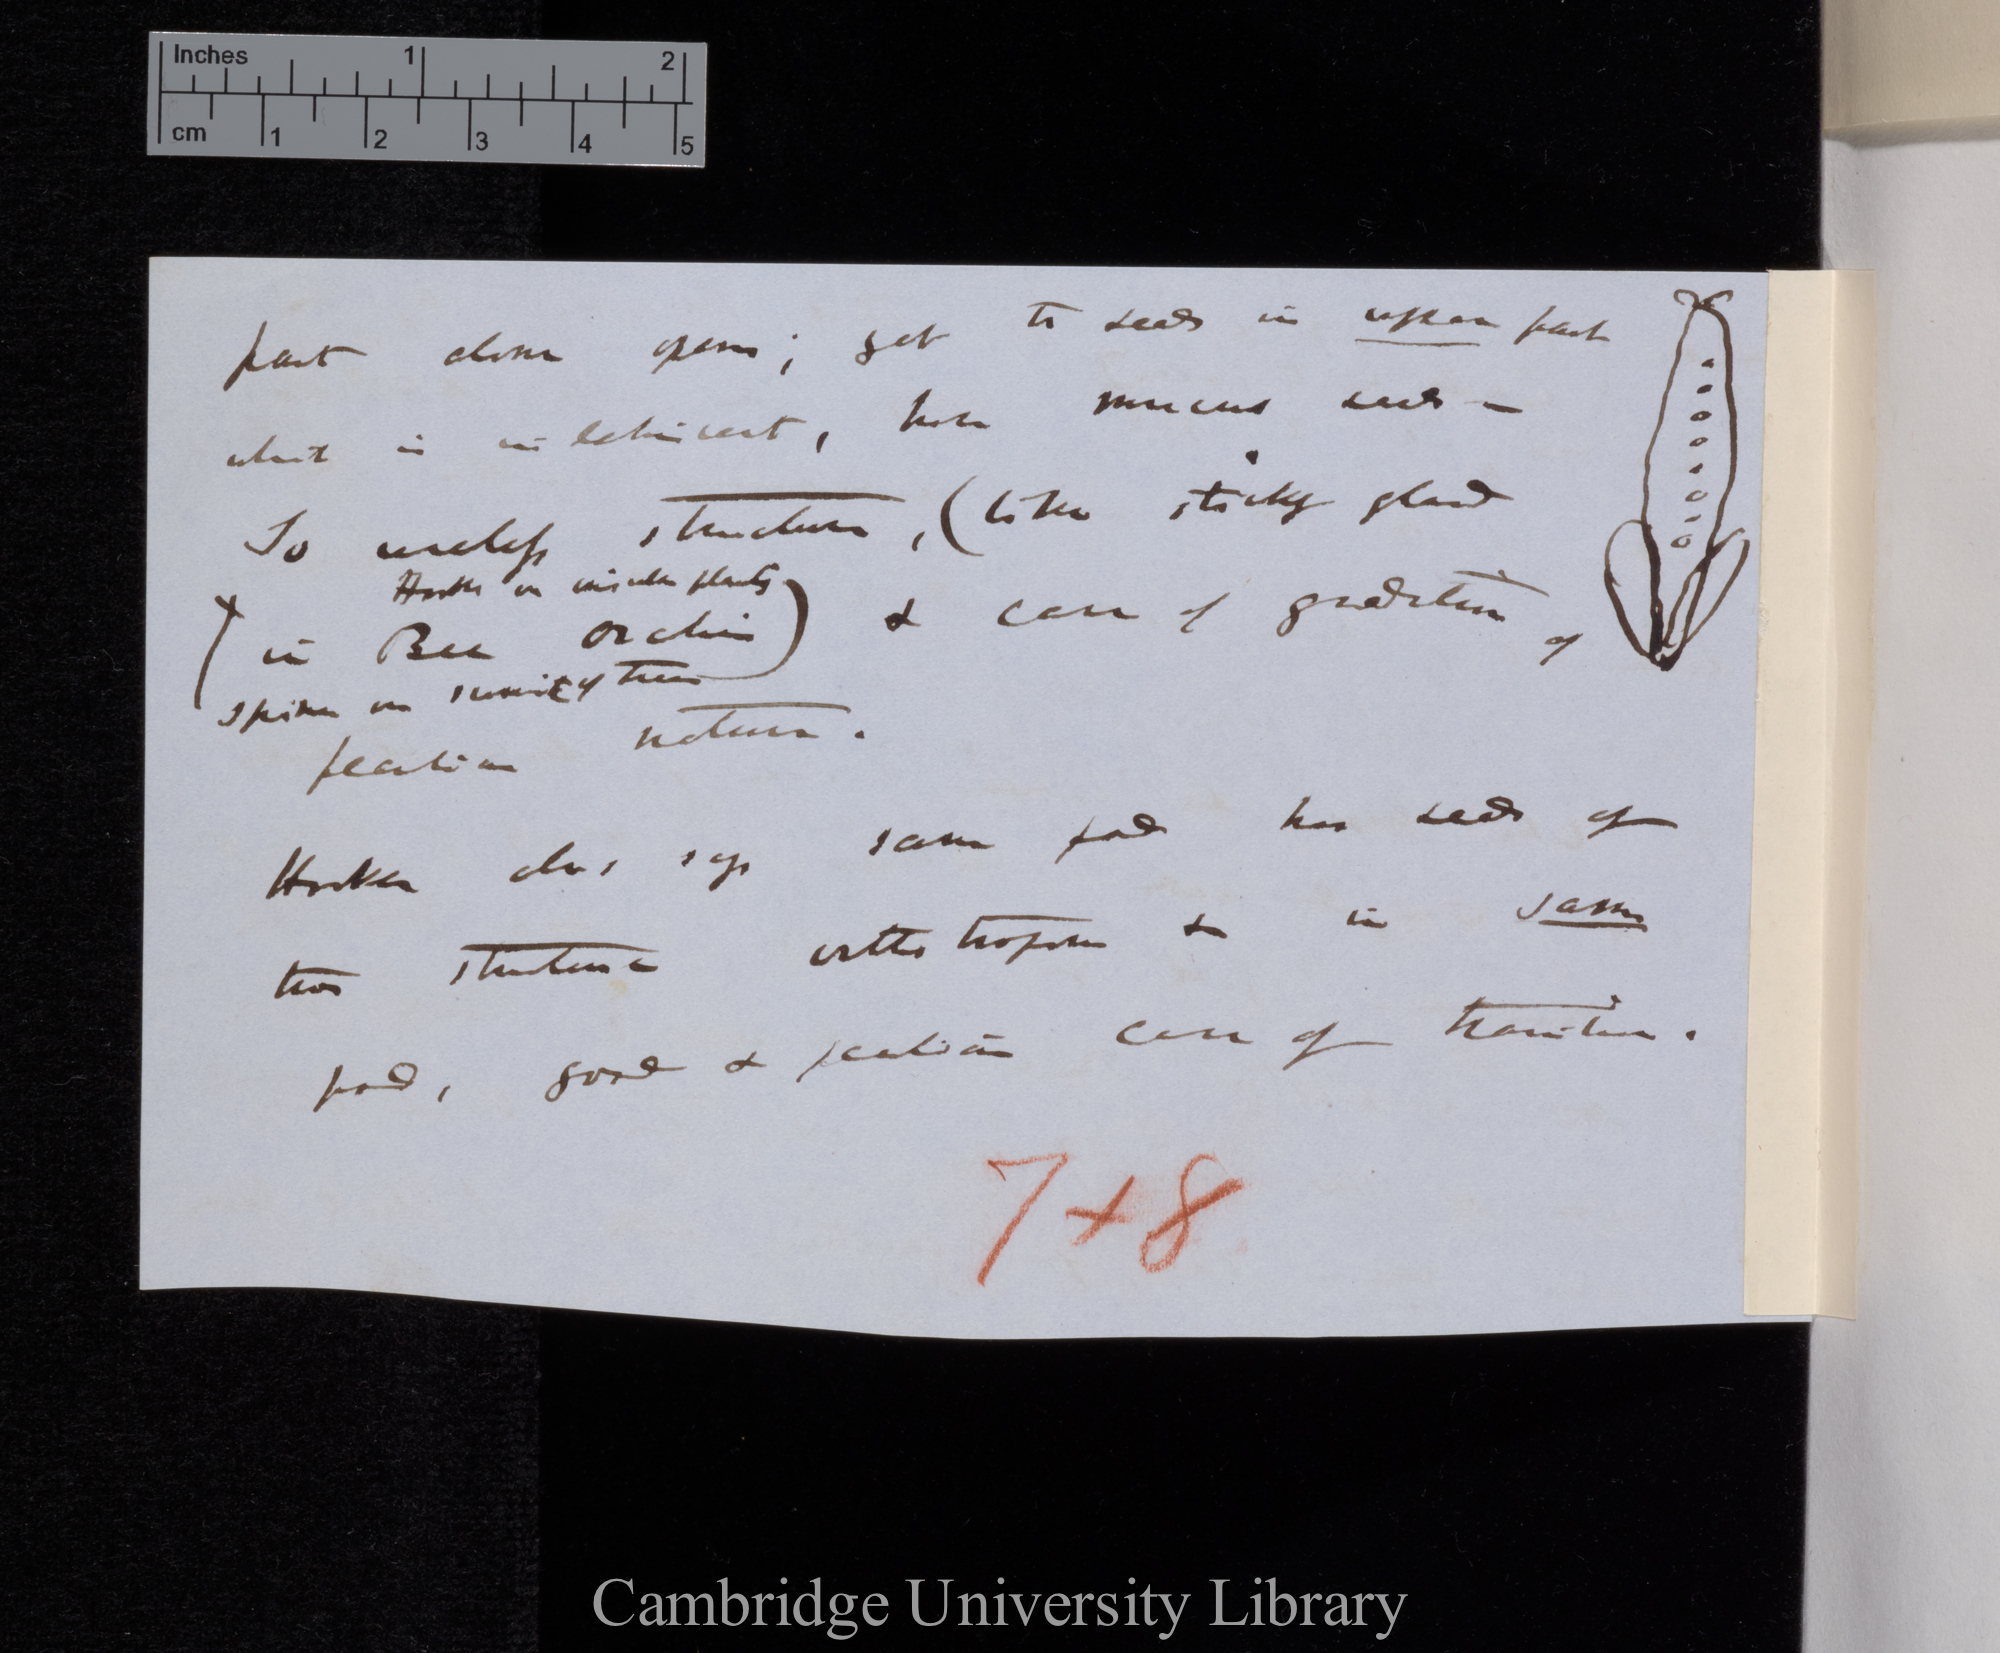 Inches 1 2
cm 1 2 3 4 5
part alone opens; yet to seeds in upper part
which is indehiscent, have mucus seeds —
So useless structure, (like sticky gland
Hooks on insular plants
in Bee Orchis) & case of gradation of
spines on summit of trees
peculiar nature.
Hooker also says same pod has seeds of
two structure orthotropous & in same
pod, good & peculiar case of transition.
7 + 8
Cambridge University Library